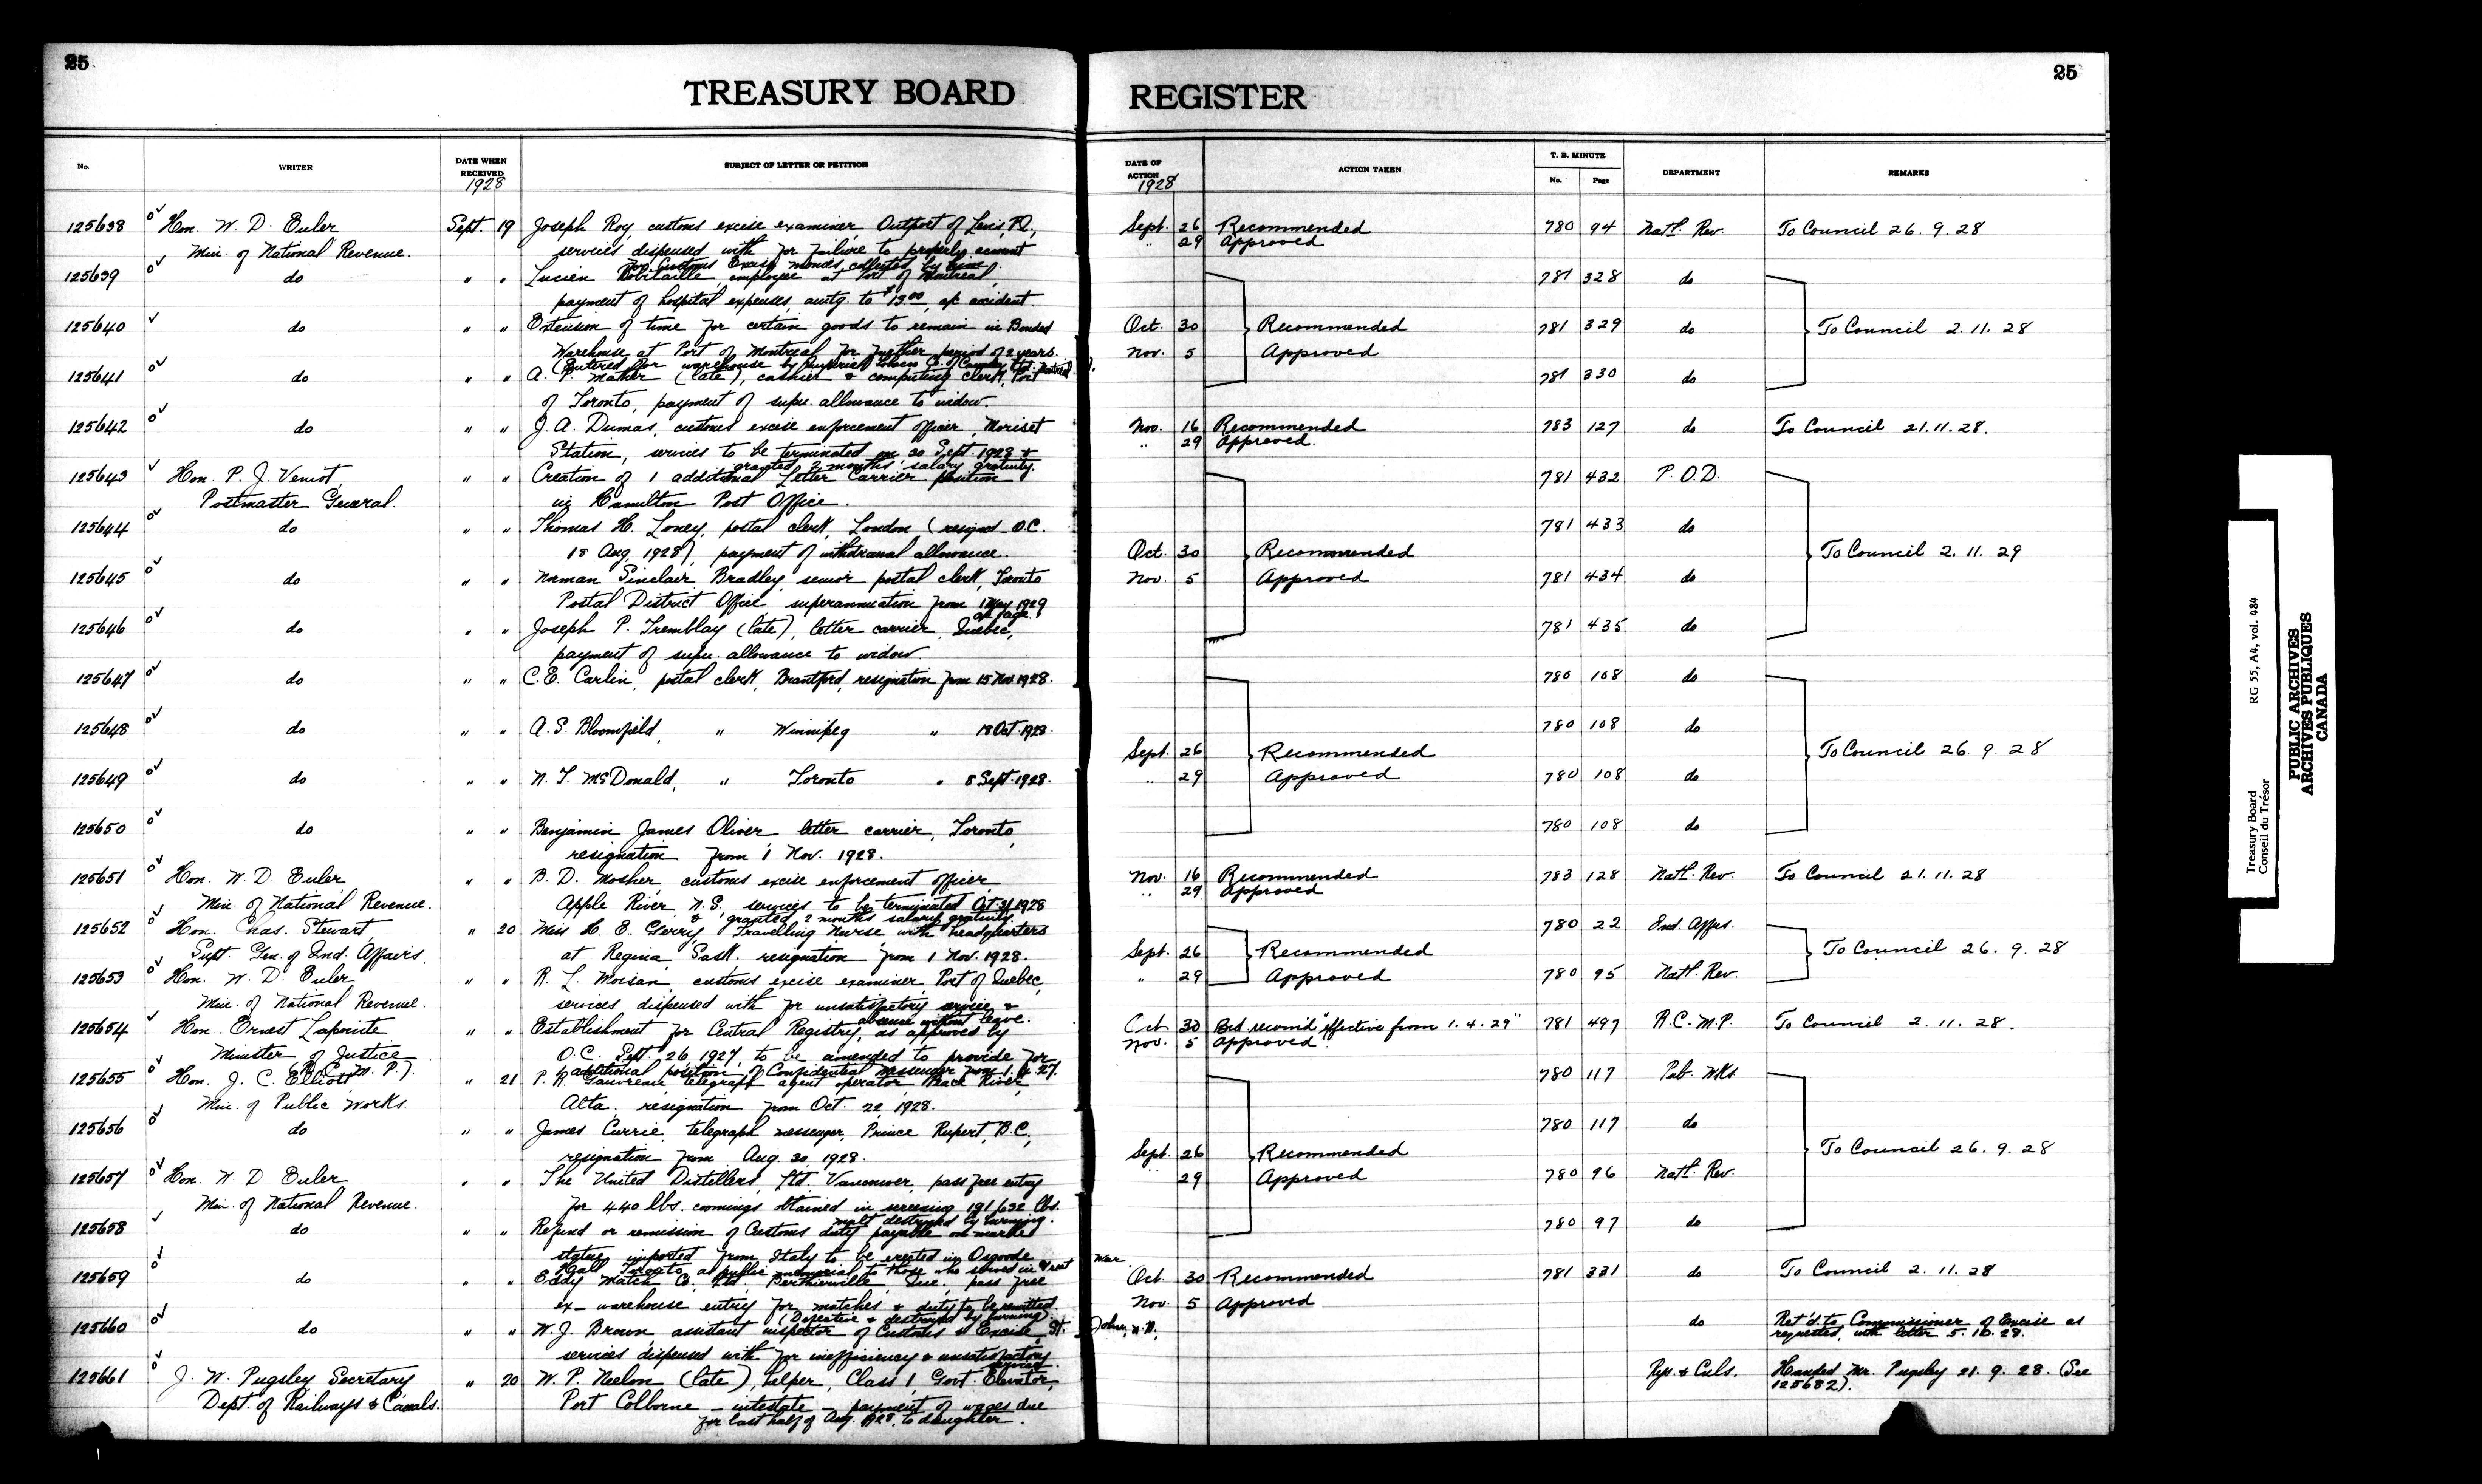 25
TREASURY BOARD
No.
WRITER
DATE WHEN RECEIVED
1928
SUBJECT OF LETTER OR PETITION
125638 Hon. W. D. Euler Sept. 19 Joseph Roy, customs excise examiner, Outport of Levis, P.Q.,
Min. of National Revenue. services dispensed with for failure to properly account
for Customs Excise monies collected by him.
125639 do " " Lucien Robitaille, employee at Port of Montreal,
payment of hospital expenses amtg. to $13.00, a/c accident.
125640 do " " Extension of time for certain goods to remain in Bonded
Warehouse at Port of Montreal for further period of 2 years.
(Entered for warehouse by Imperial Tobacco Co. of Canada Ltd. Montreal).
125641 do " " A. P. Maher (late), cashier & computing clerk, Port
of Toronto, payment of supn. allowance to widow.
125642 do " " J. A. Dumas, customs excise enforcement officer, Moriset
Station, services to be terminated on 30 Sept 1928 &
granted 2 months' salary gratuity.
125643 Hon. P. J. Veniot, " " Creation of 1 additional Letter Carrier position
Postmaster General. in Hamilton Post Office.
125644 do " " Thomas H. Loney, postal clerk, London (resigned O.C.
18 Aug. 1928), payment of withdrawal allowance.
125645 do " " Norman Sinclair Bradley, senior postal clerk, Toronto
Postal District Office, superannuation from 1 May 1929
a/c age.
125646 do " " Joseph P. Tremblay (late), letter carrier, Quebec,
payment of supn. allowance to widow.
125647 do " " C. E. Carlin, postal clerk, Brantford, resignation from 15 Nov 1928.
125648 do " " A. S. Bloomfield, " Winnipeg " 18 Oct. 1928.
125649 do " " N. T. McDonald, " Toronto " 8 Sept. 1928.
125650 do " " Benjamin James Oliver letter carrier, Toronto,
resignation from 1 Nov. 1928.
125651 Hon. W. D. Euler, " " B. D. Mosher, customs excise enforcement officer,
Min. of National Revenue. Apple River, N.S., services to be terminated Oct. 31 1928
& granted 2 months salary gratuity.
125652 Hon. Chas. Stewart, " 20 Miss H. E. Gerry, Travelling Nurse with headquarters
Supt. Gen. of Ind. Affairs. at Regina, Sask. resignation from 1 Nov. 1928.
125653 Hon. W. D. Euler " " R. L. Moisan, customs excise examiner Port of Quebec,
Min. of National Revenue. services dispensed with for unsatisfactory service &
absence without leave.
125654 Hon. Ernest Lapointe " " Establishment for Central Registry, as approved by
Minister of Justice O.C. Sept. 26, 1927, to be amended to provide for
(R. C. M. P.). additional position of Confidential Messenger from 1. 4. 27.
125655 Hon. J. C. Elliott " 21 P. R. Lawrence telegraph agent operator Peace River
Min. of Public Works. Alta. resignation from Oct. 22, 1928.
125656 do " " James Currie, telegraph messenger, Prince Rupert, B.C.,
resignation from Aug. 30, 1928.
125657 Hon. W. D. Euler " " The United Distillers, Ltd. Vancouver, pass free entry
Min. of National Revenue. for 440 lbs. comings obtained in screening 191,632 lbs.
malt destroyed by burning.
125658 do " " Refund or remission of Customs duty payable on marble
statue imported from Italy to be erected in Osgoode
Hall Toronto as public memorial to those who served in Great War.
125659 do " " Eddy Match Co. Ltd. Berthierville, Que. pass free
ex-warehouse entry for matches & duty to be remitted.
(Defective & destroyed by burning).
125660 do " " W. J. Brown, assistant inspector of Customs & Excise, St. John, N.B.,
services dispensed with for inefficiency & unsatisfactory
service.
125661 J. W. Pugsley Secretary " 20 W. P. Neelon (late), helper, Class 1, Govt. Elevator,
Dept. of Railways & Canals. Port Colborne – intestate – payment of wages due
for last half of Aug. 1928, to daughter.
25
REGISTER
DATE OF ACTION
1928
ACTION TAKEN
T. B. MINUTE
No. Page
DEPARTMENT
REMARKS
Sept. 26 Recommended 780 94 Natl. Rev. To Council 26. 9. 28
" 29 Approved
781 328 do
Oct. 30 Recommended 781 329 do To Council 2. 11. 28
Nov. 5 Approved
781 330 do
Nov. 16 Recommended 783 127 do To Council 21.11.28.
" 29 Approved.
781 432 P.O.D.
781 433 do
Oct. 30 Recommended To Council 2. 11. 29
Nov. 5 Approved 781 434 do
781 435 do
780 108 do
780 108 do
Sept. 26 Recommended To Council 26. 9. 28
" 29 Approved 780 108 do
780 108 do
Nov. 16 Recommended 783 128 Natl. Rev. To Council 21.11.28
" 29 Approved
780 22 Ind. Affrs.
Sept. 26 Recommended To Council 26. 9. 28
" 29 Approved 780 95 Natl. Rev.
Oct 30 Bd recomd "effective from 1. 4. 29" 781 497 R.C.M.P. To Council 2. 11. 28.
Nov. 5 Approved.
780 117 Pub. Wks.
780 117 do
Sept. 26 Recommended To Council 26. 9. 28
" 29 Approved 780 96 Natl. Rev.
780 97 do
Oct. 30 Recommended 781 331 do To Council 2. 11. 28
Nov. 5 Approved
do Ret'd. to Commissioner of Excise as
requested, with letter 5. 10. 28.
Rys. & Cnls. Handed Mr. Pugsley 21. 9. 28. (See
125682).
Treasury Board
Conseil du Trésor
RG 55, A4, vol. 484
PUBLIC ARCHIVES
ARCHIVES PUBLIQUES
CANADA